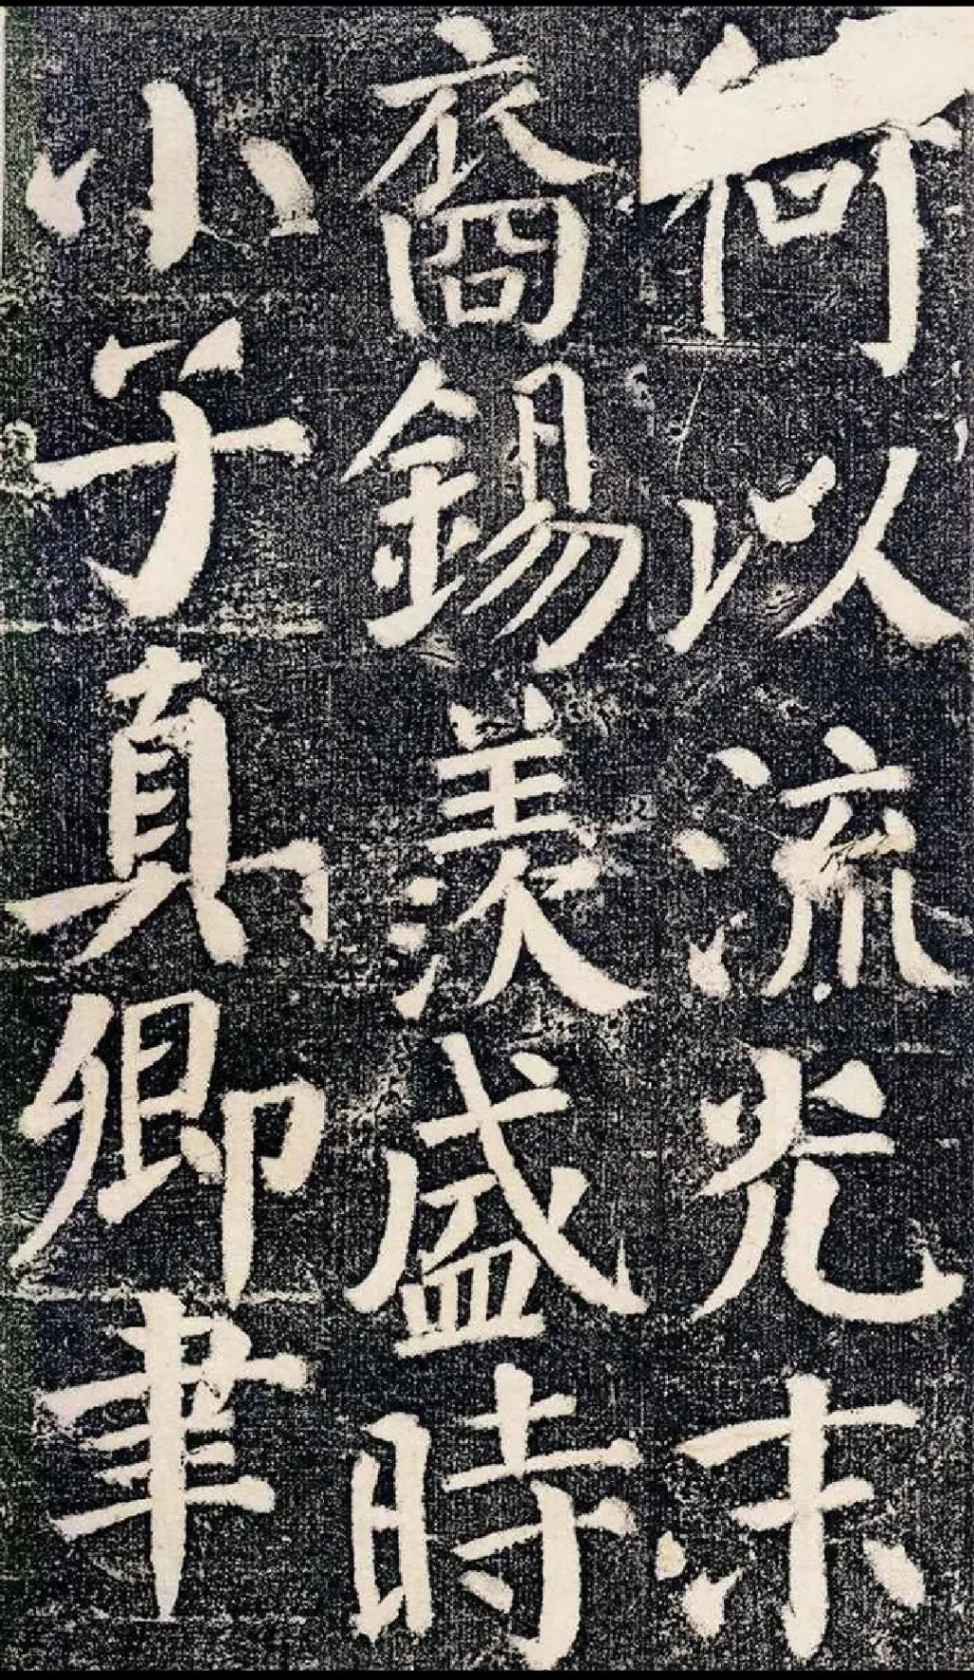 何以流光末
裔錫羡盛時
小子真卿聿